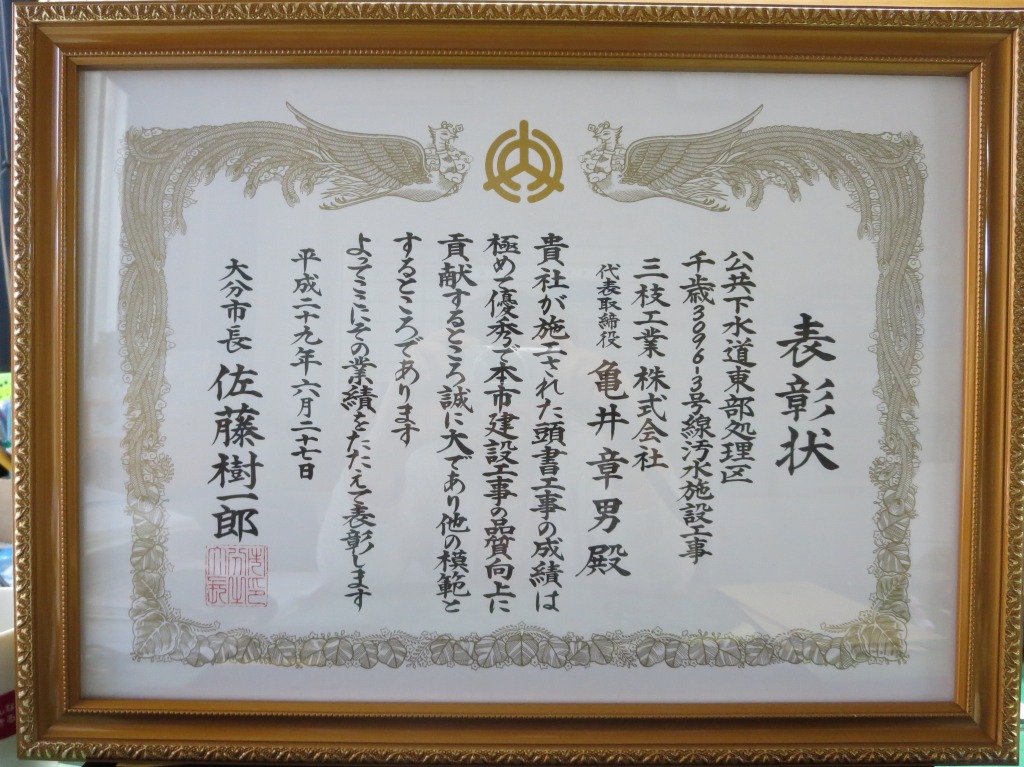 表彰状
公共下水道東部処理区
千歳3096-3号線汚水施設工事
三枝工業株式会社
代表取締役 亀井章男殿
貴社が施工された頭書工事の成績は
極めて優秀で本市建設工事の品質向上に
貢献するところ誠に大であり他の模範と
するところであります
よってここにその業績をたたえて表彰します
平成二十九年六月二十七日
大分市長 佐藤樹一郎